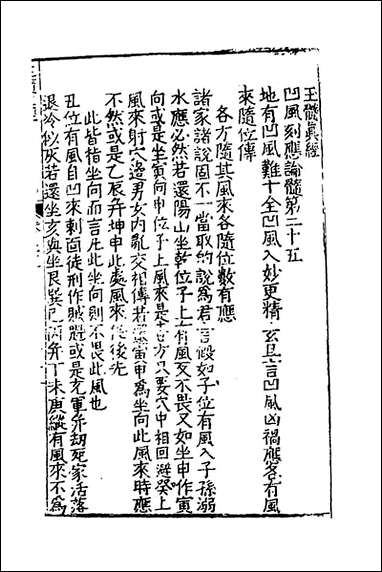 玉髓真經
凹風刻應論髓第二十五
地有凹風難十全凹風入妙更精玄且言凹風凶禍應各有風
來隨位傳
各方隨其風來各隨位數有應
諸家諸說固不一當取的說為君言假如子位有風入子孫溺
水應必然若還陽山坐乾位子上有風又不畏又如坐申作寅
向或是坐寅向申位子上風來是吉方只要穴中相回避癸上
風來射穴邊男女內亂交相傳若 寅甲為坐向此風來時應
不然或是乙辰并坤申此處風來 後先
此皆指坐向而言凡此坐向則不畏此風也
丑位有風自凹來刺面徒刑作賊 或是充軍并劫死家活落
退冷似灰若還坐亥與坐艮巽巳丙并丁未庚縱有風來不為